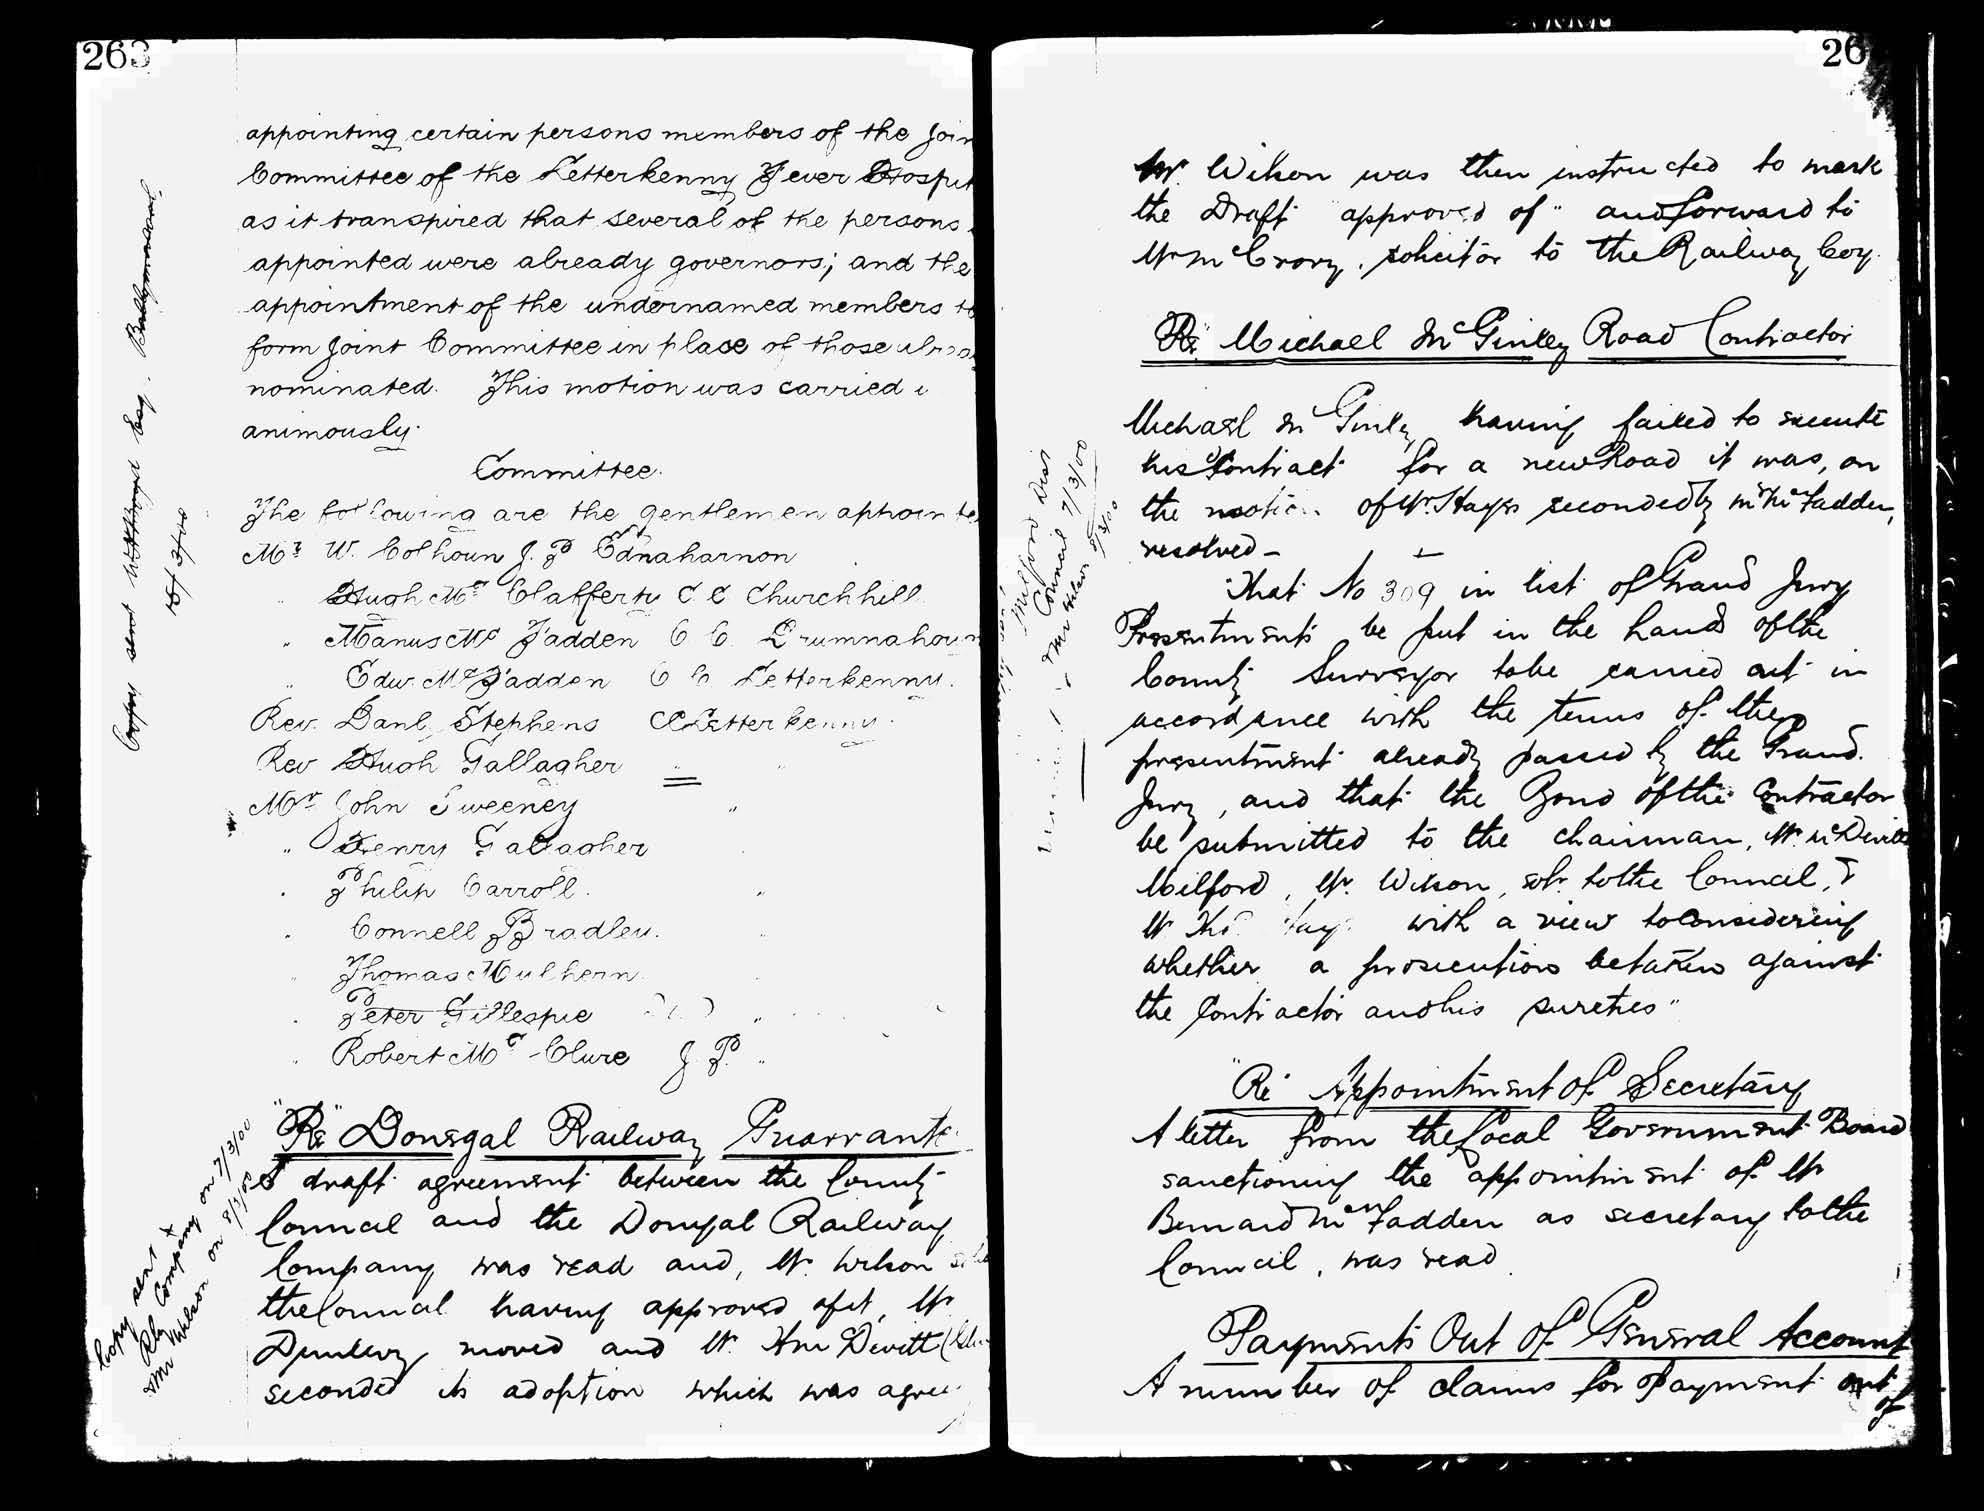 263
appointing certain persons members of the Join
Committee of the Letterkenny Fever Hospit
as it transpired that several of the persons
appointed were already governors; and the
appointment of the undernamed members to
form Joint Committee in place of those
nominated. This motion was carried
animously.
Committee.
The following are the gentlemen appointe
Mr W. Colhoun J. P Ednaharnon
" Hugh Mc Clafferty C C Churchhill
" Manus Mc Fadden C C. Drumnahoun
" Edw. Mc Fadden C C Letterkenny.
Rev. Danl. Stephens CC Letterkenny.
Rev Hugh Gallagher " "
Mr John Sweeney "
" Henry Gallagher
" Philip Carroll. "
" Connell Bradley. "
" Thomas Mulhern.
" Peter Gillespie "
" Robert Mc Clure J. P. "
"Re" Donegal Railway Guarrante
A draft agreement between the County
Council and the Donegal Railway
Company was read and, Mr. Wilson
the Council having approved of it, Mr
Dunlevy moved and Mr. Devitt
seconded its adoption which was agree
Copy sent
10/3/00
Copy sent
Rly Company on 7/3/00
Mr Wilson on 8/3/00
26
Mr. Wilson was then instructed to mark
the Draft "approved of" and forward to
Mr McCrory, solicitor to the Railway Coy.
"Re" Michael McGinley Road Contractor
Michael McGinley having failed to execute
his Contract for a new Road it was, on
the motion of Mr. Hayes seconded by Mr McFadden,
resolved –
"That No 309 in list of Grand Jury
Presentments be put in the hands of the
County Surveyor to be carried out in
accordance with the terms of the
presentment already passed by the Grand
Jury, and that the Bond of the Contractor
be submitted to the chairman, Mr. McDevitt
Milford, Mr. Wilson, solr. to the Council, &
Mr Thos. Hayes with a view to considering
whether a prosecution be taken against
the Contractor and his sureties"
"Re" Appointment of Secretary
A letter from the Local Government Board
sanctioning the appointment of Mr
Bernard McFadden as secretary to the
Council, was read.
Payments Out of General Account
A number of claims for payment out of
Milford Dist
Council 7/3/00
Mr Wilson 8/3/00